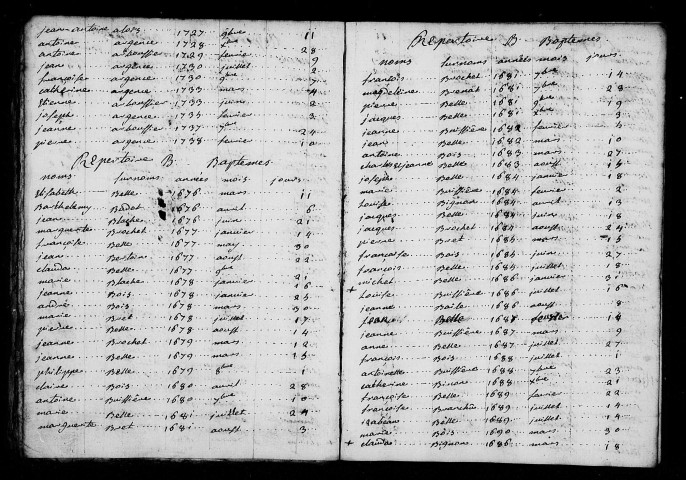 jean antoine alois 1727 9bre 11
antoine argence 1728 xbre
antoine arbouffier 1729 fevrier 28
jean argence 1730 juillet 9
françoise argence 1730 9bre 2
catherine argence 1733 mars 4
etienne arbouffier 1733 juin 2
joseph argence 1735 fevrier 3
jeanne arbouffier 1737 7bre 24
pierre argence 1738 fevrier 10
Répertoire B. Baptemes
noms surnoms années mois jours
elisabeth Belle 1676 mars 11
Barthelemy Badot 1676 avril 6
jean Blache 1676 juin 21
marguerite Brochet 1677 janvier 14
françoise Belle 1677 may 30
jean Bertin 1677 aoust 22
claude Belle 1677 9bre
marie Blache 1678 janvier 21
jeanne Bois 1678 janvier 16
andré Bois 1678 mars 25
marie Bret 1678 juillet 30
pierre Belle 1678 aoust 17
jeanne Brochet 1679 mars 14
jeanne Belle 1679 mars 12
philippe Belle 1679 8bre 15
claire Bois 1680 avril 28
antoine Buissière 1680 7bre 10
marie Belle 1681 juillet 24
marguerite Bret 1681 aoust 3
Répertoire B Baptemes
noms surnoms années mois jours
françois Brochet 1681 7bre 14
magdeleine Brenat 1681 7bre 28
pierre Belle 1681 9bre 19
jacques Belle 1681 xbre 3
jeanne Buissière 1682 fevrier 4
jean Belle 1682 mars 10
antoine Bois 1683 mars 27
charles etienne Belle 1683 aoust 15
joseph Belle 1684 janvier 18
marie Buissière 1684 fevrier 2
louise Bignon 1684 avril 13
jacques Belle 1684 juin 18
jacques Brochet 1684 aoust 24
pierre Bret 1685 mars 15
françoise Belle 1685 juin 27
françois Belle 1685 juillet 18
michel Belle 1686 janvier 31
+ louise Buissière 1686 juillet 16
jeanne Baile 1686 aoust 8
jean Belle 1687 fevrier 14
jeanne Buissière 1687 mars 9
anne Belle 1687 juillet 27
françois Bois 1688 juillet 1
antoinette Buissière 1688 7bre 23
catherine Binan 1688 xbre 21
françoise Belle 1689 janvier 22
françoise Branchu 1689 juillet 14
isabeau Belle 1689 juillet 14
marie Bois 1690 mars 30
+ claude Bignon 1686 mars 18